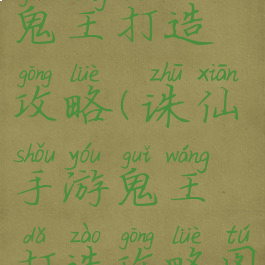 鬼王打造
gōng lüè zhū xiān
攻略(诛仙
shǒu yóu guǐ wáng
手游鬼王
dǎ zào gōng lüè tú
打造攻略图